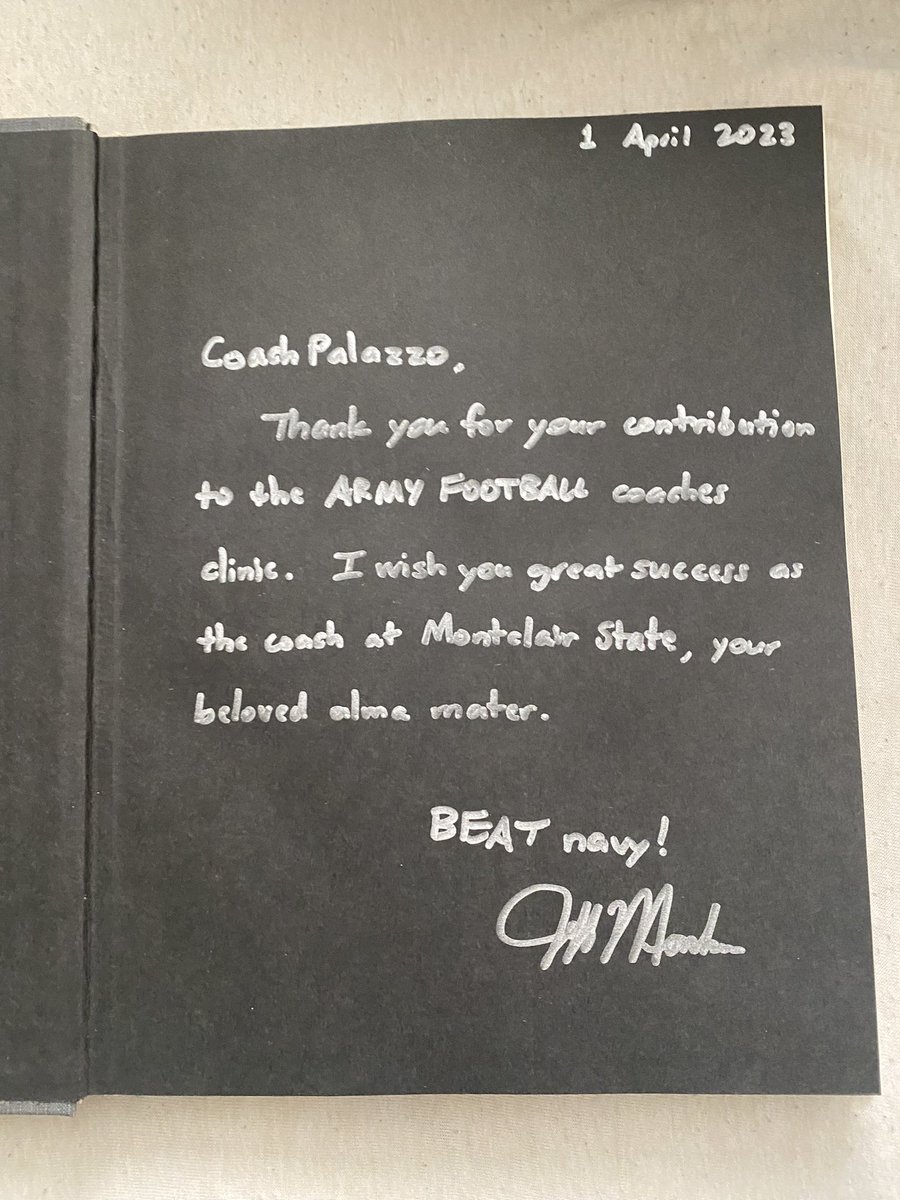 1 April 2023
Coach Palazzo,
Thank you for your contribution
to the ARMY FOOTBALL coaches
clinic. I wish you great success as
the coach at Montclair State, your
beloved alma mater.
BEAT navy!
Jeff Monken